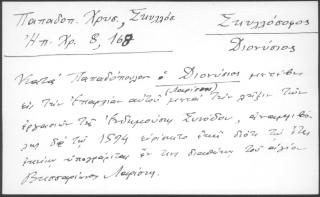 Παπαδοπ. Χρυσ., Σκυλλόσ
Ἠπ. Χρ. 8, 168
Σκυλλόσοφος
Διονύσιος
Κατὰ Παπαδόπουλον ὁ Διονύσιος μετέβη
(Λαρίσης)
εἰς τὴν Ἐπαρχίαν αὐτοῦ μετὰ τὴν λῆξιν τῶν
ἐργασιῶν τῆς Ἐνδημούσης Συνόδου,
δὲ τῷ 1594 εὑρίσκετο ἐκεῖ διότι τῷ ἔτει
ἐκείνῳ ὑπογράφεται ἐν τῇ διαθήκῃ τοῦ ἁγίου
Βησσαρίωνος Λαρίσης.